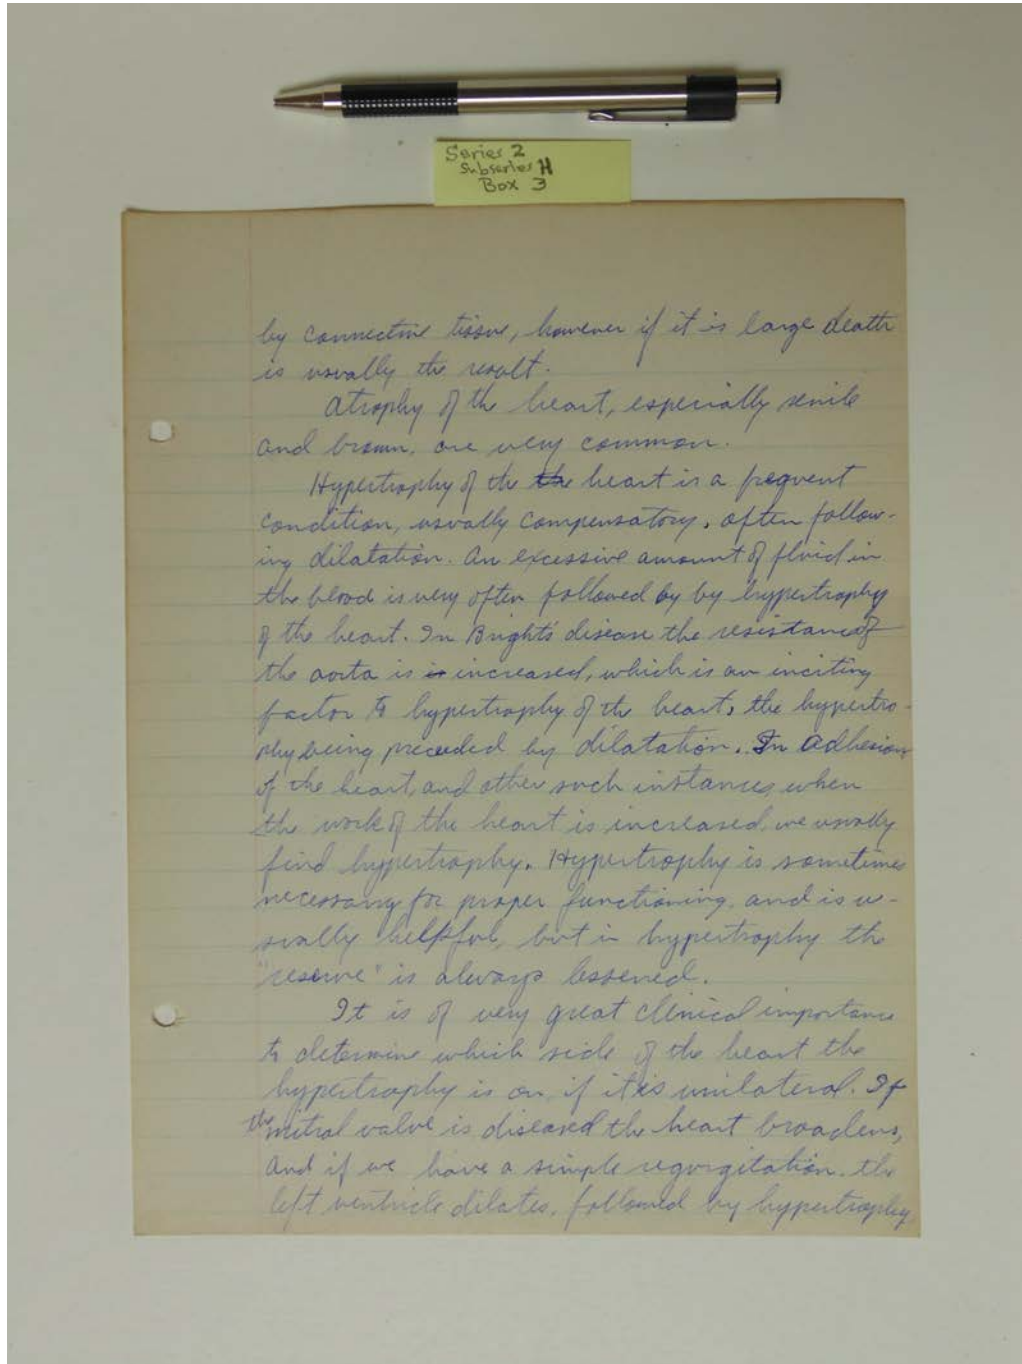 Series 2
Subseries H
Box 3
by connective tissue, however if it is large death
is usually the result.
Atrophy of the heart, especially senile
and brown, are very common.
Hypertrophy of the the heart is a frequent
condition, usually compensatory, often follow-
ing dilatation. An excessive amount of fluid in
the blood is very often followed by by hypertrophy
of the heart. In Bright's disease the resistance of
the aorta is is increased, which is an inciting
factor to hypertrophy of the heart, the hypertro-
phy being preceded by dilatation. In adhesions
of the heart, and other such instances, when
the work of the heart is increased, we usually
find hypertrophy. Hypertrophy is sometimes
necessary for proper functioning, and is u-
sually helpful, but in hypertrophy the
"reserve" is always lessened.
It is of very great clinical importance
to determine which side of the heart the
hypertrophy is on, if it is unilateral. If
the mitral valve is diseased the heart broadens,
and if we have a simple regurgitation, the
left ventricle dilates, followed by hypertrophy,